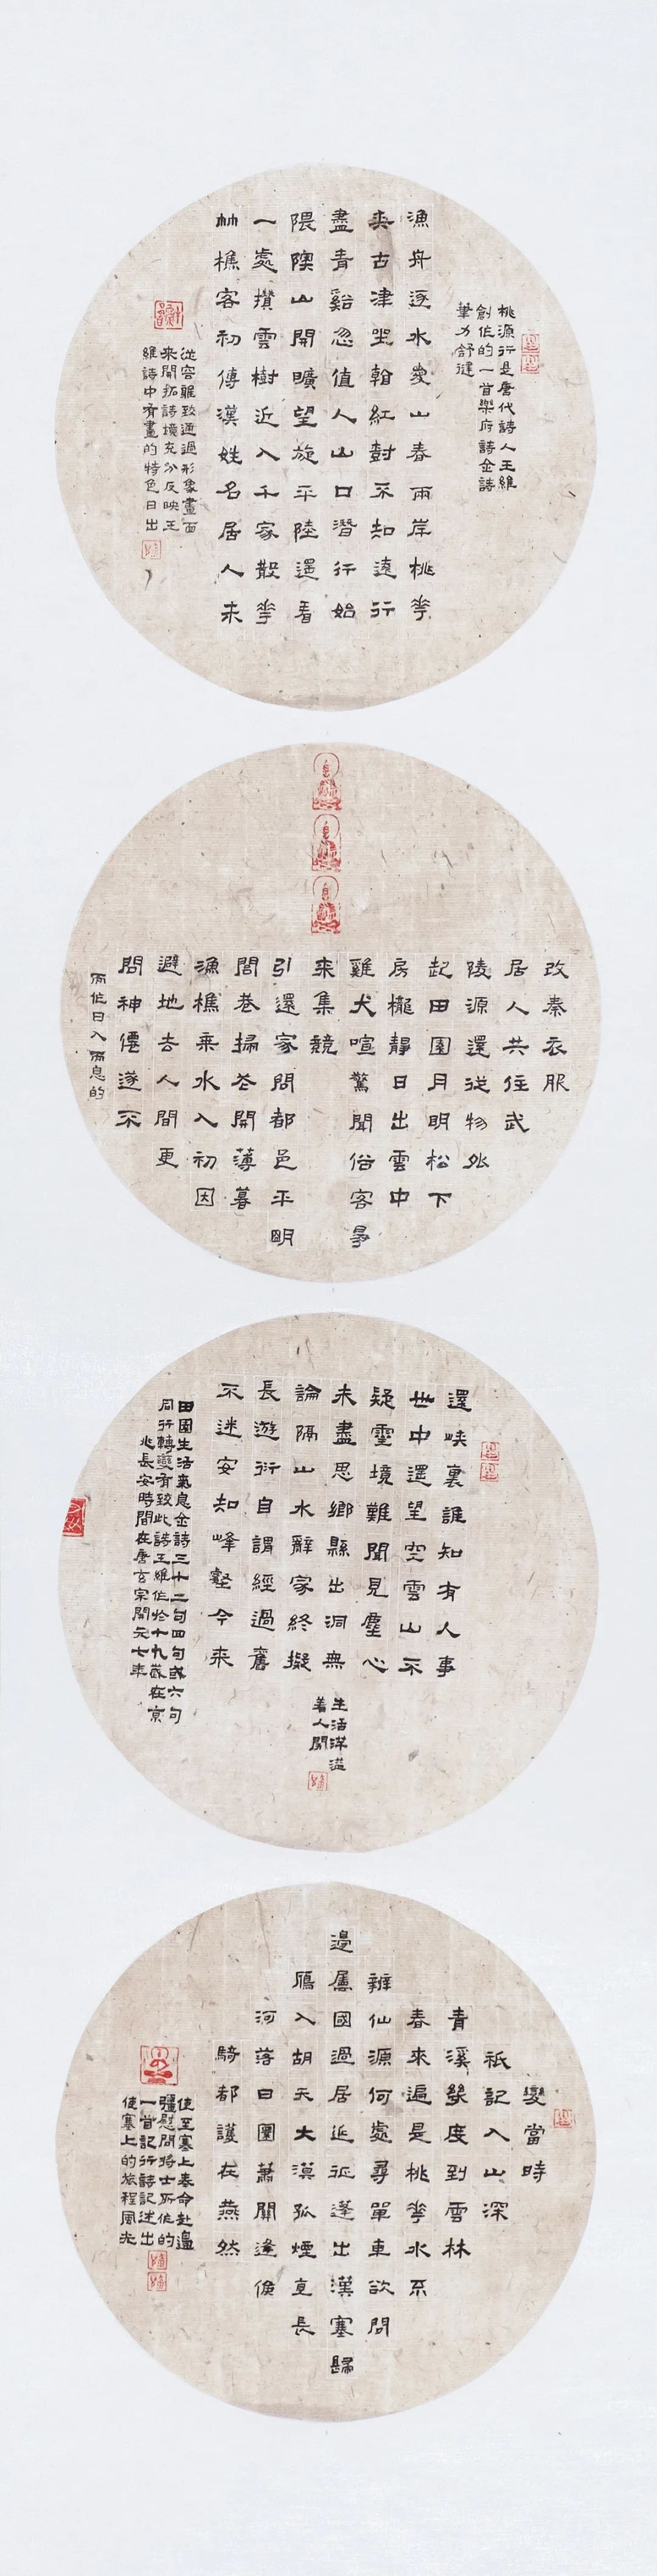 桃源行是唐代詩人王維
創作的一首樂府詩全詩
筆力舒健
漁舟逐水愛山春兩岸桃花
夾古津坐看紅樹不知遠行
盡青谿忽值人山口潛行始
隈隩山開曠望旋平陸遥看
一處攢雲樹近入千家散花
竹樵客初傳漢姓名居人未
從容雅致通過形象畫面
來開拓詩境充分反映王
維詩中有畫的特色日出
改秦衣服
居人共住武
陵源還從物外
起田園月明松下
房櫳靜日出雲中
雞犬喧驚聞俗客爭
來集競
引還家問都邑平明
閭巷掃花開薄暮
漁樵乘水入初因
避地去人間更
問神僊遂不
而作日入而息的
還峽裏誰知有人事
世中遥望空雲山不
疑靈境難聞見塵心
未盡思鄉縣出洞無
論隔山水辭家終擬
長遊衍自謂經過舊
不迷安知峰壑今来
生活洋溢
着人間
田園生活氣息全詩三十二句四句或六句
同行轉變有致此詩王維作於十九歲在京
兆長安時間在唐玄宗開元七年
變當時
祇記入山深
青溪幾度到雲林
春来遍是桃花水系
辨仙源何處尋單車欲問
邊屬國過居延征蓬出漢塞歸
鴈入胡天大漠孤煙直長
河落日圓蕭關逢候
騎都護在燕然
使至塞上奉命赴邊
疆慰問將士所作的
一首記行詩記述出
使塞上的旅程風光